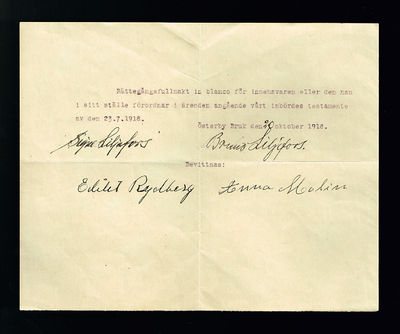 Rättegångsfullmakt in blanco för innehavaren eller den han
i sitt ställe förordnar i ärenden angående vårt inbördes testamente
av den 23.7.1918.
Österby Bruk den 26 oktober 1918.
Signe Liljefors Bruno Liljefors.
Bevittnas:
Edit Rydberg Anna Malin